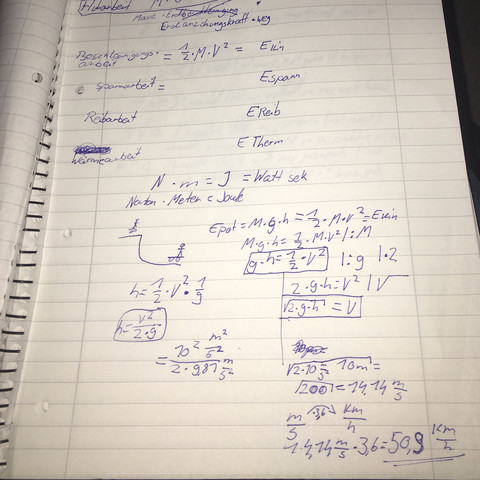 Hubarbeit M · g
Masse · Erdbeschleunigung
Erdanziehungskraft · weg
Beschleunigungs- = 1/2 · M · V² = E kin
arbeit
Spannarbeit = E spann
Reibarbeit E Reib
E Therm
Wärmearbeit
N · m = J = Watt sek
Newton · Meter = Joule
Epot = M · g · h = 1/2 · M · V² = E kin
M · g · h = 1/2 · M · V² | : M
g · h = 1/2 · V² | : g | · 2
h = 1/2 · V² · 1/g
2 · g · h = V² | √
√2 · g · h = V
h = V²/2 · g
= 10² m²/s² / 2 · 9,81 m/s²
√2 · 10 m/s² · 10m =
√200 = 14,14 m/s
m/s · 3,6 Km/h
14,14 m/s · 3,6 = 50,9 Km/h